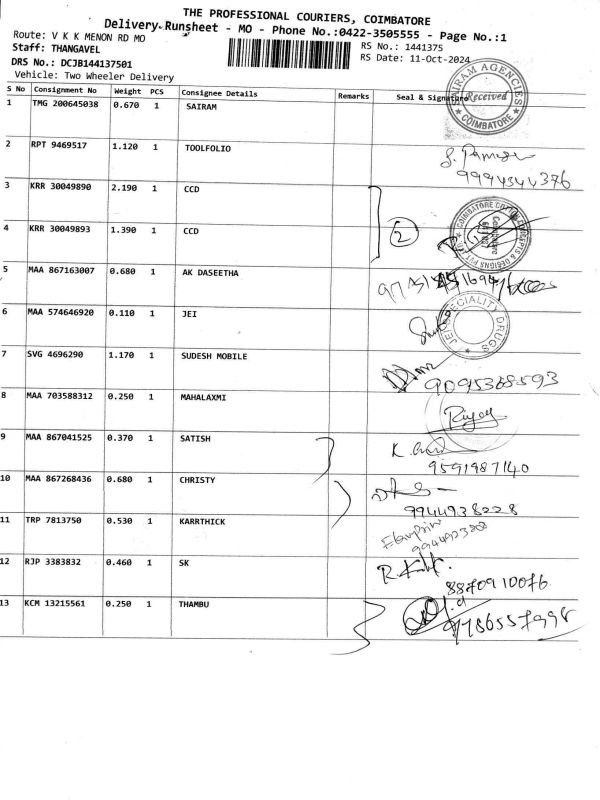 THE PROFESSIONAL COURIERS, COIMBATORE
Delivery Runsheet - MO - Phone No.:0422-3505555 - Page No.:1
Route: V K K MENON RD MO
RS No.: 1441375
Staff: THANGAVEL
RS Date: 11-Oct-2024
DRS No.: DCJB144137501
Vehicle: Two Wheeler Delivery
S No Consignment No Weight PCS Consignee Details Remarks Seal & Signature
1 TMG 200645038 0.670 1 SAIRAM
SAIRAM AGENCIES
Received
COIMBATORE
2 RPT 9469517 1.120 1 TOOLFOLIO
9994344376
3 KRR 30049890 2.190 1 CCD
2
4 KRR 30049893 1.390 1 CCD
5 MAA 867163007 0.680 1 AK DASEETHA
6 MAA 574646920 0.110 1 JEI
JEI SPECIALITY DRUGS
7 SVG 4696290 1.170 1 SUDESH MOBILE
9095368593
8 MAA 703588312 0.250 1 MAHALAXMI
9 MAA 867041525 0.370 1 SATISH
9591987140
10 MAA 867268436 0.680 1 CHRISTY
9944938228
11 TRP 7813750 0.530 1 KARRTHICK
12 RJP 3383832 0.460 1 SK
8870910076
13 KCM 13215561 0.250 1 THAMBU
9786557998